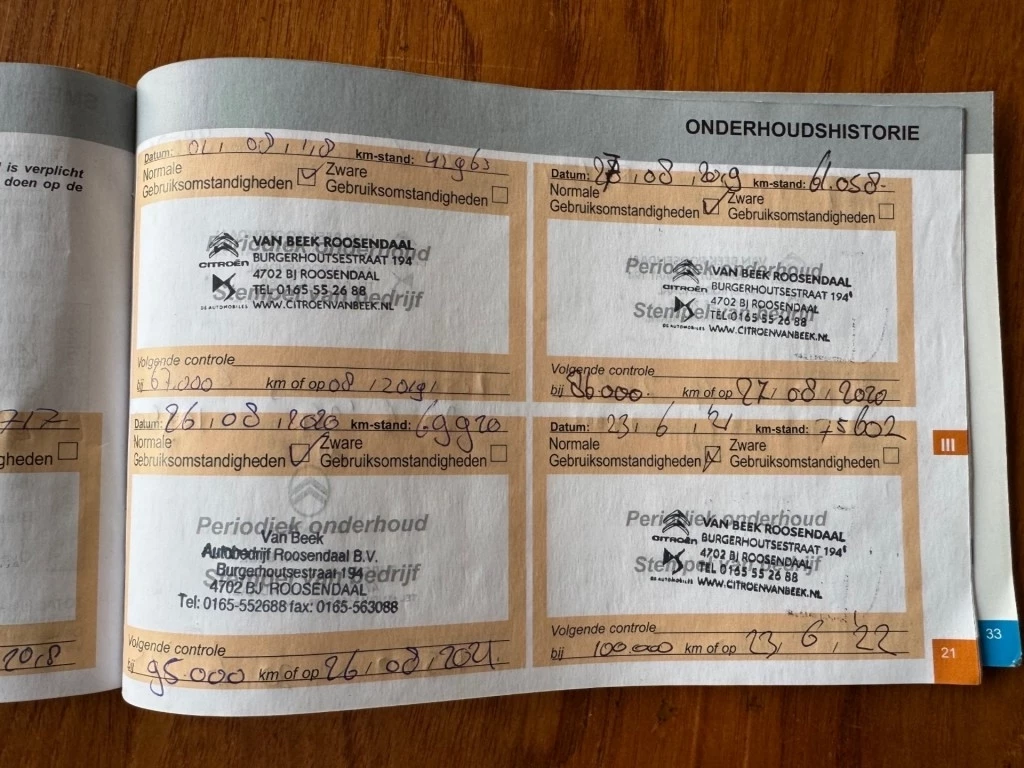 l is verplicht
doen op de
gheden
ONDERHOUDSHISTORIE
Datum: 01, 08, 18 km-stand: 42963
Normale Zware
Gebruiksomstandigheden Gebruiksomstandigheden
Periodiek onderhoud
Stempel van bedrijf
CITROËN
DS AUTOMOBILES
VAN BEEK ROOSENDAAL
BURGERHOUTSESTRAAT 194
4702 BJ ROOSENDAAL
TEL 0165 55 26 88
WWW.CITROENVANBEEK.NL
Volgende controle
bij 67.000 km of op 08, 2019,
Datum: 28, 08, 2019 km-stand: 61.058-
Normale Zware
Gebruiksomstandigheden Gebruiksomstandigheden
Periodiek onderhoud
Stempel van bedrijf
CITROËN
DS AUTOMOBILES
VAN BEEK ROOSENDAAL
BURGERHOUTSESTRAAT 194
4702 BJ ROOSENDAAL
TEL 0165 55 26 88
WWW.CITROENVANBEEK.NL
Volgende controle
bij 86.000. km of op 27, 08, 2020
Datum: 26, 08, 2020 km-stand: 69920
Normale Zware
Gebruiksomstandigheden Gebruiksomstandigheden
Periodiek onderhoud
Stempel van bedrijf
Van Beek
Autobedrijf Roosendaal B.V.
Burgerhoutsestraat 194
4702 BJ ROOSENDAAL
Tel: 0165-552688 fax: 0165-563088
Volgende controle
bij 95.000 km of op 26, 08, 2021.
Datum: 23, 6, 21 km-stand: 75602
Normale Zware
Gebruiksomstandigheden Gebruiksomstandigheden
Periodiek onderhoud
Stempel van bedrijf
CITROËN
DS AUTOMOBILES
VAN BEEK ROOSENDAAL
BURGERHOUTSESTRAAT 194
4702 BJ ROOSENDAAL
TEL 0165 55 26 88
WWW.CITROENVANBEEK.NL
Volgende controle
bij 100.000 km of op 23, 6, 22
III
21
33